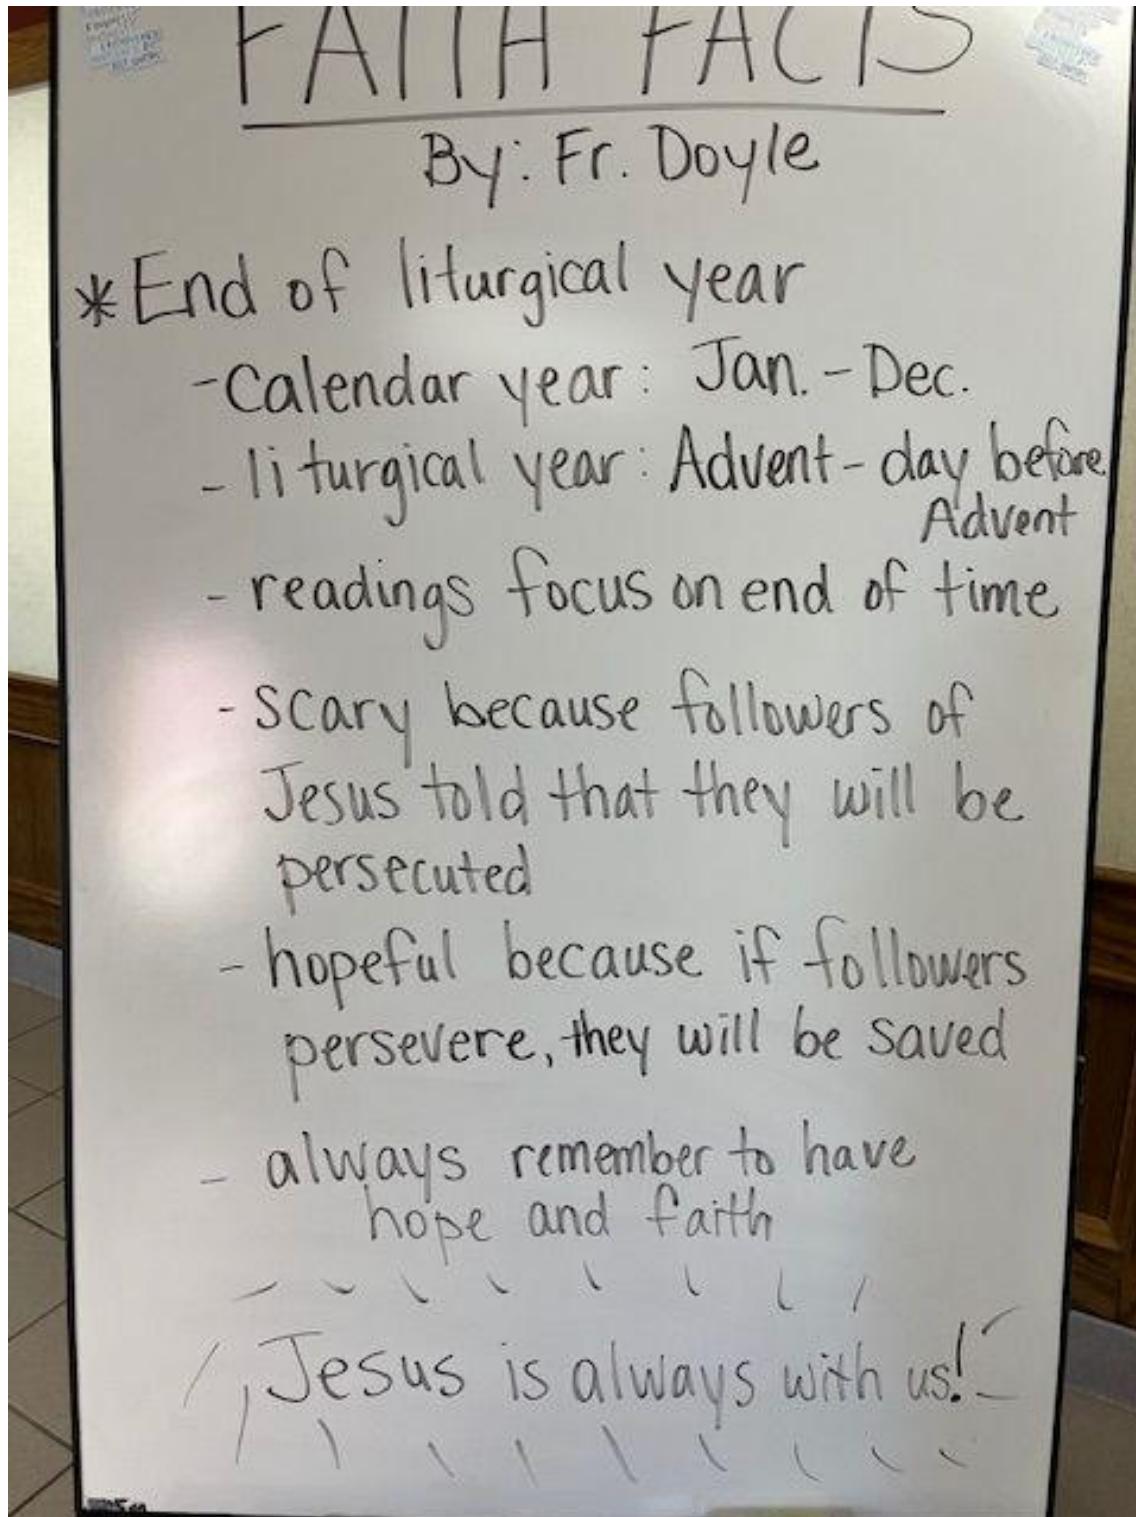 FAITH FACTS
By: Fr. Doyle
*End of liturgical year
-Calendar year: Jan. - Dec.
- liturgical year: Advent - day before
Advent
- readings focus on end of time
- scary because followers of
Jesus told that they will be
persecuted
- hopeful because if followers
persevere, they will be saved
- always remember to have
hope and faith
Jesus is always with us!